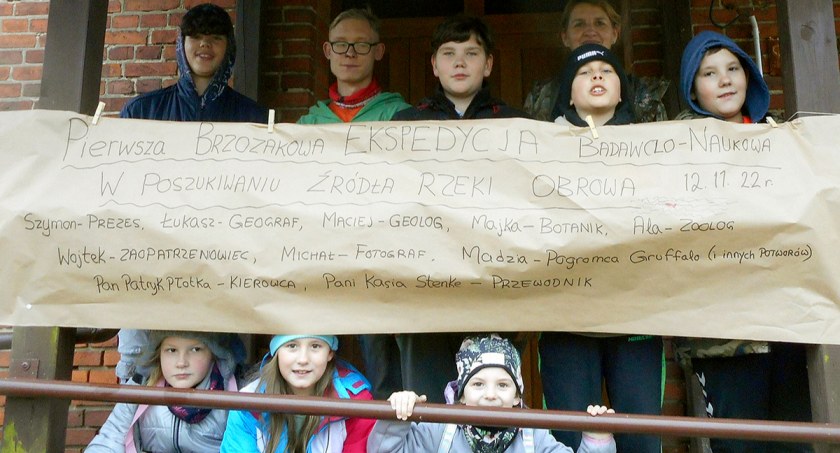 Pierwsza Brzozakowa EKSPEDYCJA Badawczo-Naukowa
W poszukiwaniu źródła rzeki Obrowa 12.11.22 r.
Szymon-Prezes, Łukasz-Geograf, Maciej-Geolog, Majka-Botanik, Ala-Zoolog
Wojtek-Zaopatrzeniowiec, Michał-Fotograf, Madzia-Pogromca Gruffalo (i innych potworów)
Pan Patryk Płotka-Kierowca, Pani Kasia Stenke-Przewodnik
PUMA